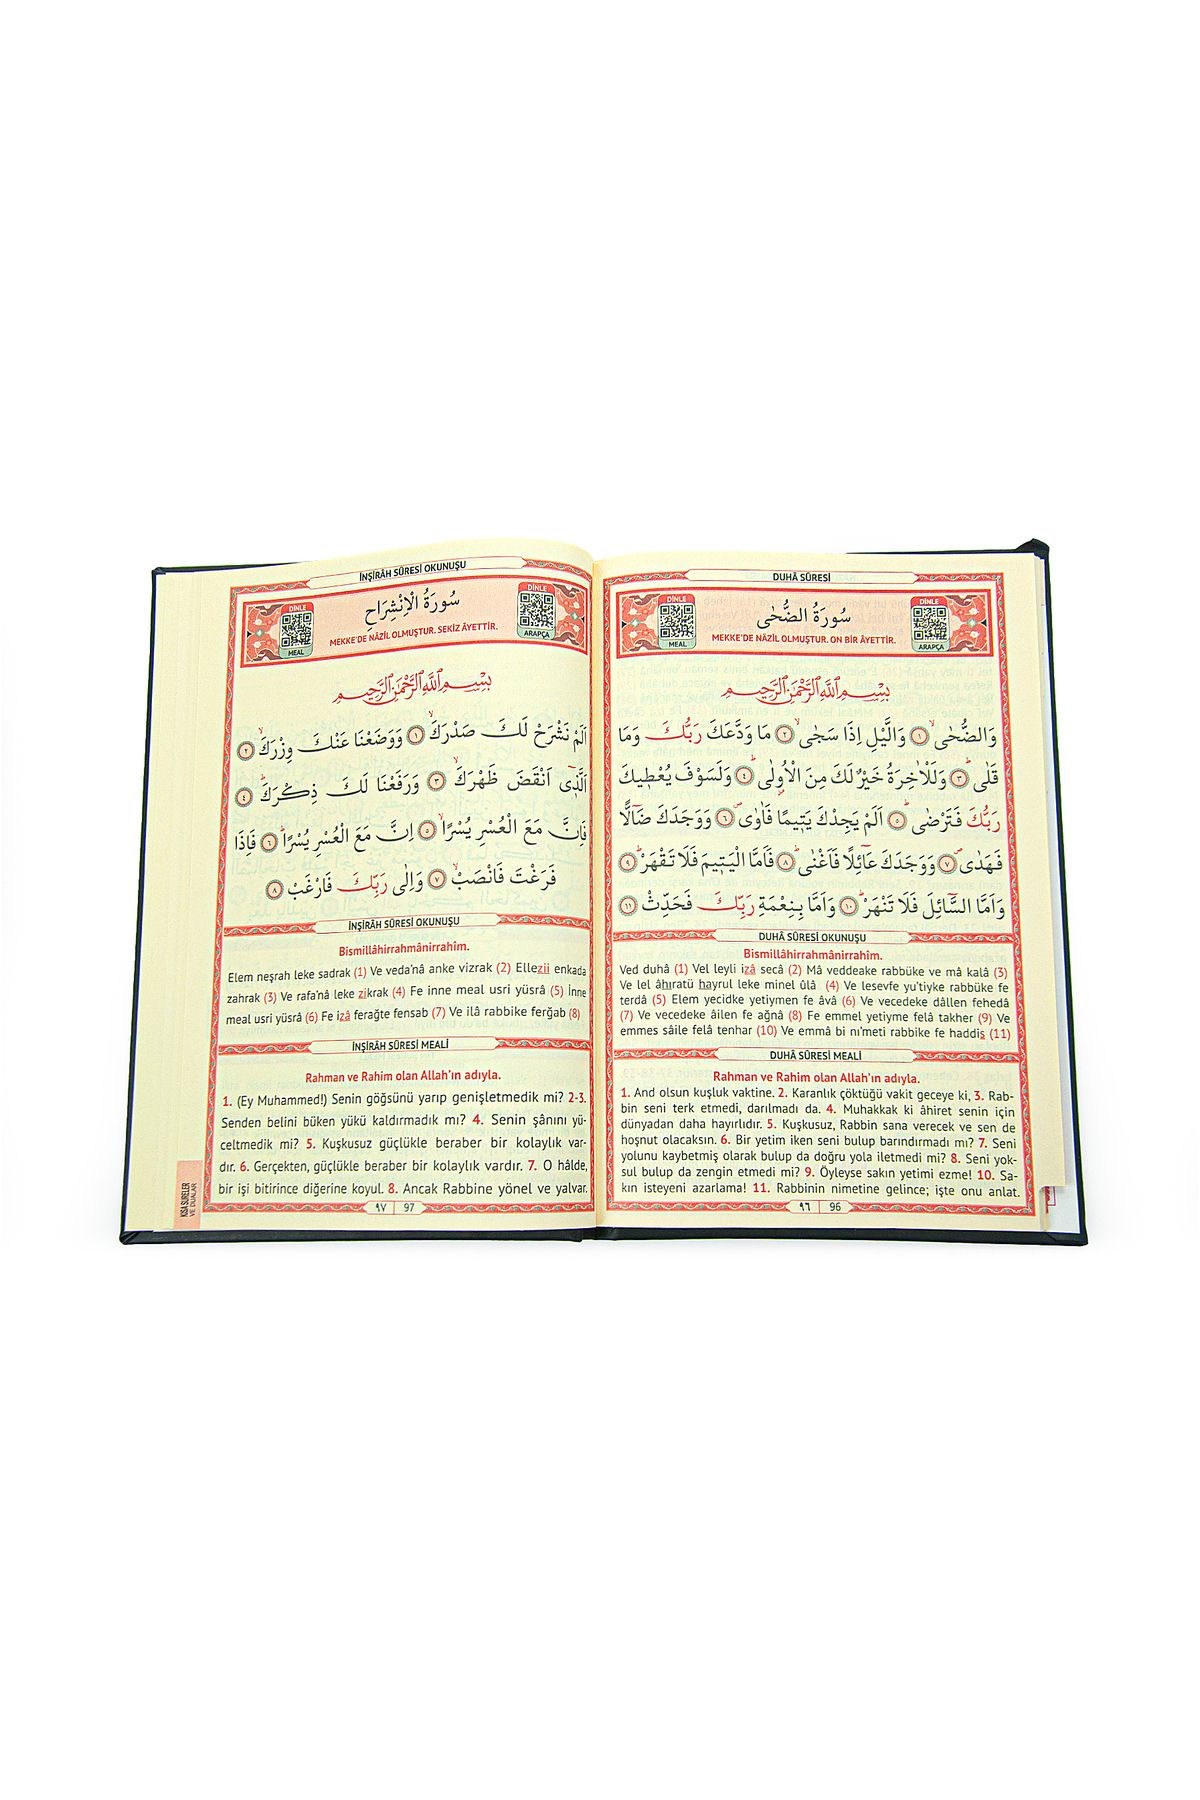 İNŞİRÂH SÛRESİ OKUNUŞU
DİNLE
MEAL
سُورَةُ الْاِنْشِرَاحِ
MEKKE'DE NÂZİL OLMUŞTUR. SEKİZ ÂYETTİR.
DİNLE
ARAPÇA
بِسْمِ اللّٰهِ الرَّحْمٰنِ الرَّحِيمِ
اَلَمْ نَشْرَحْ لَكَ صَدْرَكَۙ ﴿١﴾ وَوَضَعْنَا عَنْكَ وِزْرَكَۙ ﴿٢﴾
اَلَّذٖٓي اَنْقَضَ ظَهْرَكَۙ ﴿٣﴾ وَرَفَعْنَا لَكَ ذِكْرَكَۜ ﴿٤﴾
فَاِنَّ مَعَ الْعُسْرِ يُسْرًاۙ ﴿٥﴾ اِنَّ مَعَ الْعُسْرِ يُسْرًاۜ ﴿٦﴾ فَاِذَا
فَرَغْتَ فَانْصَبْۙ ﴿٧﴾ وَاِلٰى رَبِّكَ فَارْغَبْ ﴿٨﴾
İNŞİRÂH SÛRESİ OKUNUŞU
Bismillâhirrahmânirrahîm.
Elem neşrah leke sadrak (1) Ve veda'nâ anke vizrak (2) Ellezii enkada
zahrak (3) Ve rafa'nâ leke zikrak (4) Fe inne meal usri yüsrâ (5) İnne
meal usri yüsrâ (6) Fe izâ ferağte fensab (7) Ve ilâ rabbike ferğab (8)
İNŞİRÂH SÛRESİ MEALİ
Rahman ve Rahim olan Allah'ın adıyla.
1. (Ey Muhammed!) Senin göğsünü yarıp genişletmedik mi? 2-3.
Senden belini büken yükü kaldırmadık mı? 4. Senin şânını yü-
celtmedik mi? 5. Kuşkusuz güçlükle beraber bir kolaylık var-
dır. 6. Gerçekten, güçlükle beraber bir kolaylık vardır. 7. O hâlde,
bir işi bitirince diğerine koyul. 8. Ancak Rabbine yönel ve yalvar.
٩٧ 97
KISA SURELER
VE DUALAR
DUHÂ SÛRESİ
DİNLE
MEAL
سُورَةُ الضُّحٰى
MEKKE'DE NÂZİL OLMUŞTUR. ON BİR ÂYETTİR.
DİNLE
ARAPÇA
بِسْمِ اللّٰهِ الرَّحْمٰنِ الرَّحِيمِ
وَالضُّحٰىۙ ﴿١﴾ وَالَّيْلِ اِذَا سَجٰىۙ ﴿٢﴾ مَا وَدَّعَكَ رَبُّكَ وَمَا
قَلٰىۜ ﴿٣﴾ وَلَلْاٰخِرَةُ خَيْرٌ لَكَ مِنَ الْاُولٰىۜ ﴿٤﴾ وَلَسَوْفَ يُعْطٖيكَ
رَبُّكَ فَتَرْضٰىۜ ﴿٥﴾ اَلَمْ يَجِدْكَ يَتٖيمًا فَاٰوٰىۖ ﴿٦﴾ وَوَجَدَكَ ضَٓالًّا
فَهَدٰىۖ ﴿٧﴾ وَوَجَدَكَ عَٓائِلًا فَاَغْنٰىۜ ﴿٨﴾ فَاَمَّا الْيَتٖيمَ فَلَا تَقْهَرْۜ ﴿٩﴾
وَاَمَّا السَّٓائِلَ فَلَا تَنْهَرْۜ ﴿١٠﴾ وَاَمَّا بِنِعْمَةِ رَبِّكَ فَحَدِّثْ ﴿١١﴾
DUHÂ SÛRESİ OKUNUŞU
Bismillâhirrahmânirrahîm.
Ved duhâ (1) Vel leyli izâ secâ (2) Mâ veddeake rabbüke ve mâ kalâ (3)
Ve lel âhıratü hayrul leke minel ûlâ (4) Ve lesevfe yu'tiyke rabbüke fe
terdâ (5) Elem yecidke yetiymen fe âvâ (6) Ve vecedeke dâllen fehedâ
(7) Ve vecedeke âilen fe ağnâ (8) Fe emmel yetiyme felâ takher (9) Ve
emmes sâile felâ tenhar (10) Ve emmâ bi nı'meti rabbike fe haddis (11)
DUHÂ SÛRESİ MEALİ
Rahman ve Rahim olan Allah'ın adıyla.
1. And olsun kuşluk vaktine. 2. Karanlık çöktüğü vakit geceye ki, 3. Rab-
bin seni terk etmedi, darılmadı da. 4. Muhakkak ki âhiret senin için
dünyadan daha hayırlıdır. 5. Kuşkusuz, Rabbin sana verecek ve sen de
hoşnut olacaksın. 6. Bir yetim iken seni bulup barındırmadı mı? 7. Seni
yolunu kaybetmiş olarak bulup da doğru yola iletmedi mi? 8. Seni yok-
sul bulup da zengin etmedi mi? 9. Öyleyse sakın yetimi ezme! 10. Sa-
kın isteyeni azarlama! 11. Rabbinin nimetine gelince; işte onu anlat.
٩٦ 96